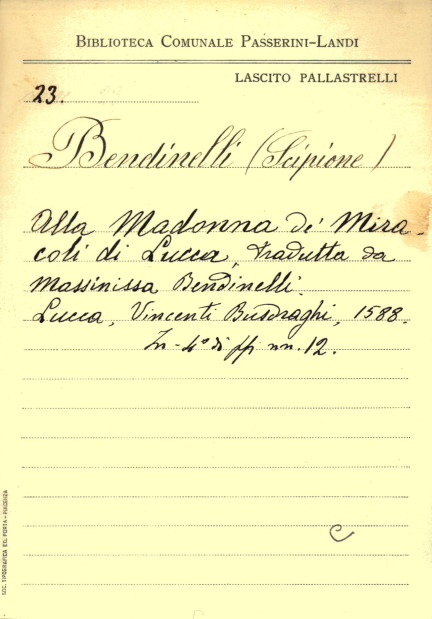 BIBLIOTECA COMUNALE PASSERINI-LANDI
LASCITO PALLASTRELLI
23.
Bendinelli (Scipione)
Alla Madonna de' Mira-
coli di Lucca, tradutta da
Massinissa Bendinelli.
Lucca, Vincenti Busdraghi, 1588.
In-4° di pp nn. 12.
C
SOC. TIPOGRAFICA ED. PORTA - PIACENZA